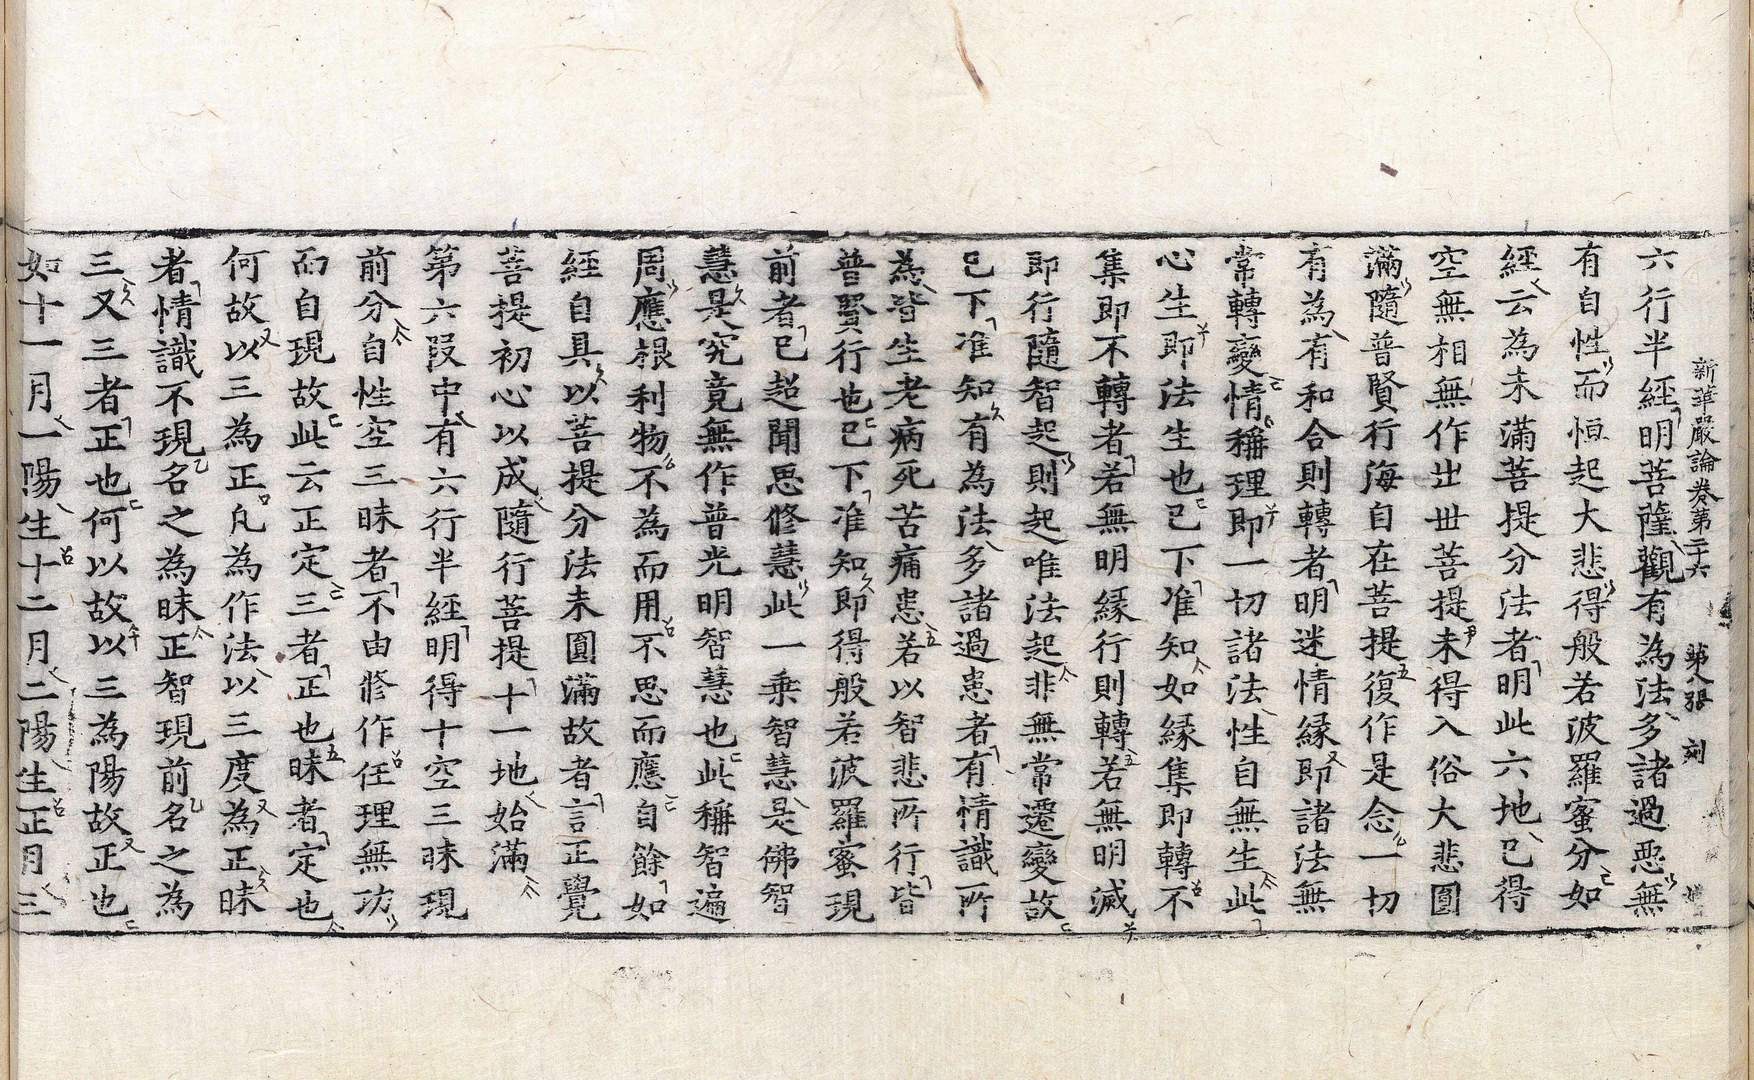 新華嚴論卷第二十六 第八張 刻
六行半經明菩薩觀有為法多諸過惡無
有自性而恒起大悲得般若波羅蜜分如
經云為未滿菩提分法者明此六地已得
空無相無作出世菩提未得入俗大悲圓
滿隨普賢行海自在菩提復作是念一切
有為有和合則轉者明迷情緣即諸法無
常轉變情稱理即一切諸法性自無生此
心生即法生也已下准知如緣集即轉不
集即不轉者若無明緣行則轉若無明滅
即行隨智起則起唯法起非無常遷變故
已下准知有為法多諸過患者有情識所
為皆生老病死苦痛患若以智悲所行皆
普賢行也已下准知即得般若波羅蜜現
前者已超聞思修慧此一乘智慧是佛智
慧是究竟無作普光明智慧也此稱智遍
周應根利物不為而用不思而應自餘如
經自具以菩提分法未圓滿故者言正覺
菩提初心以成隨行菩提十一地始滿
第六段中有六行半經明得十空三昧現
前分自性空三昧者不由修作任理無功
而自現故此云正定三者正也昧者定也
何故以三為正凡為作法以三度為正昧
者情識不現名之為昧正智現前名之為
三又三者正也何以故以三為陽故正也
如十一月一陽生十二月二陽生正月三